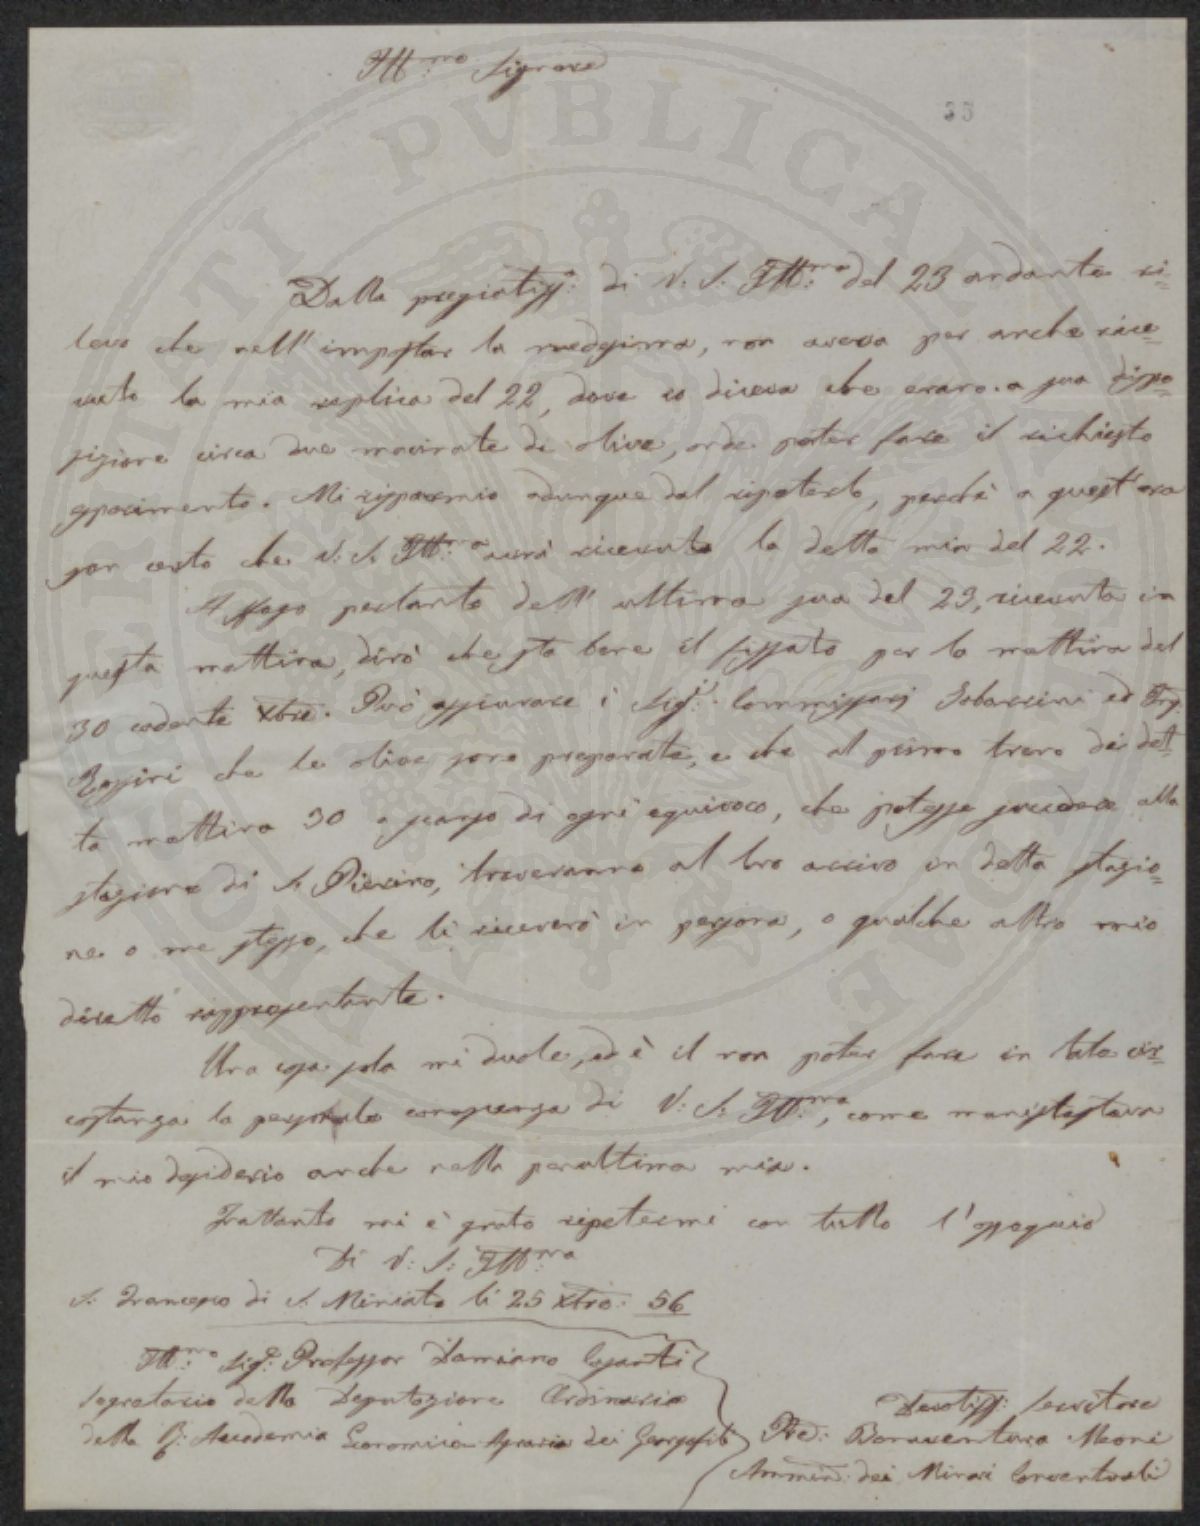 Ill:mo Signore
35
Dalla pregiatiss: di V: S: Ill:ma del 23 andante ri=
levo che nell' impostar la medesima, non aveva per anche rice=
vuto la mia replica del 22, dove io diceva che erano a sua dispo=
sizione circa due macinate di olive, onde poter fare il richiesto
esperimento. Mi risparmio adunque dal ripeterlo, perchè a quest'ora
son certo che V: S: Ill:ma avrà ricevuta la detta mia del 22.
A sfogo pertanto dell' ultima sua del 23, ricevuta in
questa mattina, dirò che sta bene il fissato per la mattina del
30 cadente Xbre. Può assicurare i Sig:i Commissarj Sobaccini ed Ing:
Rossini che le olive sono preparate, e che al primo treno di det=
ta mattina 30 a scanso di ogni equivoco, che potesse succedere alla
stazione di S. Pierino, troveranno al loro arrivo in detta stazio=
ne o me stesso, che li riceverò in persona, o qualche altro mio
diretto rappresentante.
Una cosa sola mi duole, ed è il non poter fare in tale cir=
costanza la personale conoscenza di V: S: Ill:ma, come manifestava
il mio desiderio anche nella penultima mia.
Frattanto mi è grato ripetermi con tutto l'ossequio
Di V: S: Ill:ma
S: Francesco di S. Miniato li 25 Xbre: 56
Ill:mo Sig:e Professor Damiano Casanti
Segretario della Deputazione Ordinaria
della I: Accademia Economica Agraria dei Georgofili
Devotiss: Servitore
Pre: Bonaventura Meoni
Ammin: dei Minori Conventuali
PVBLICAE